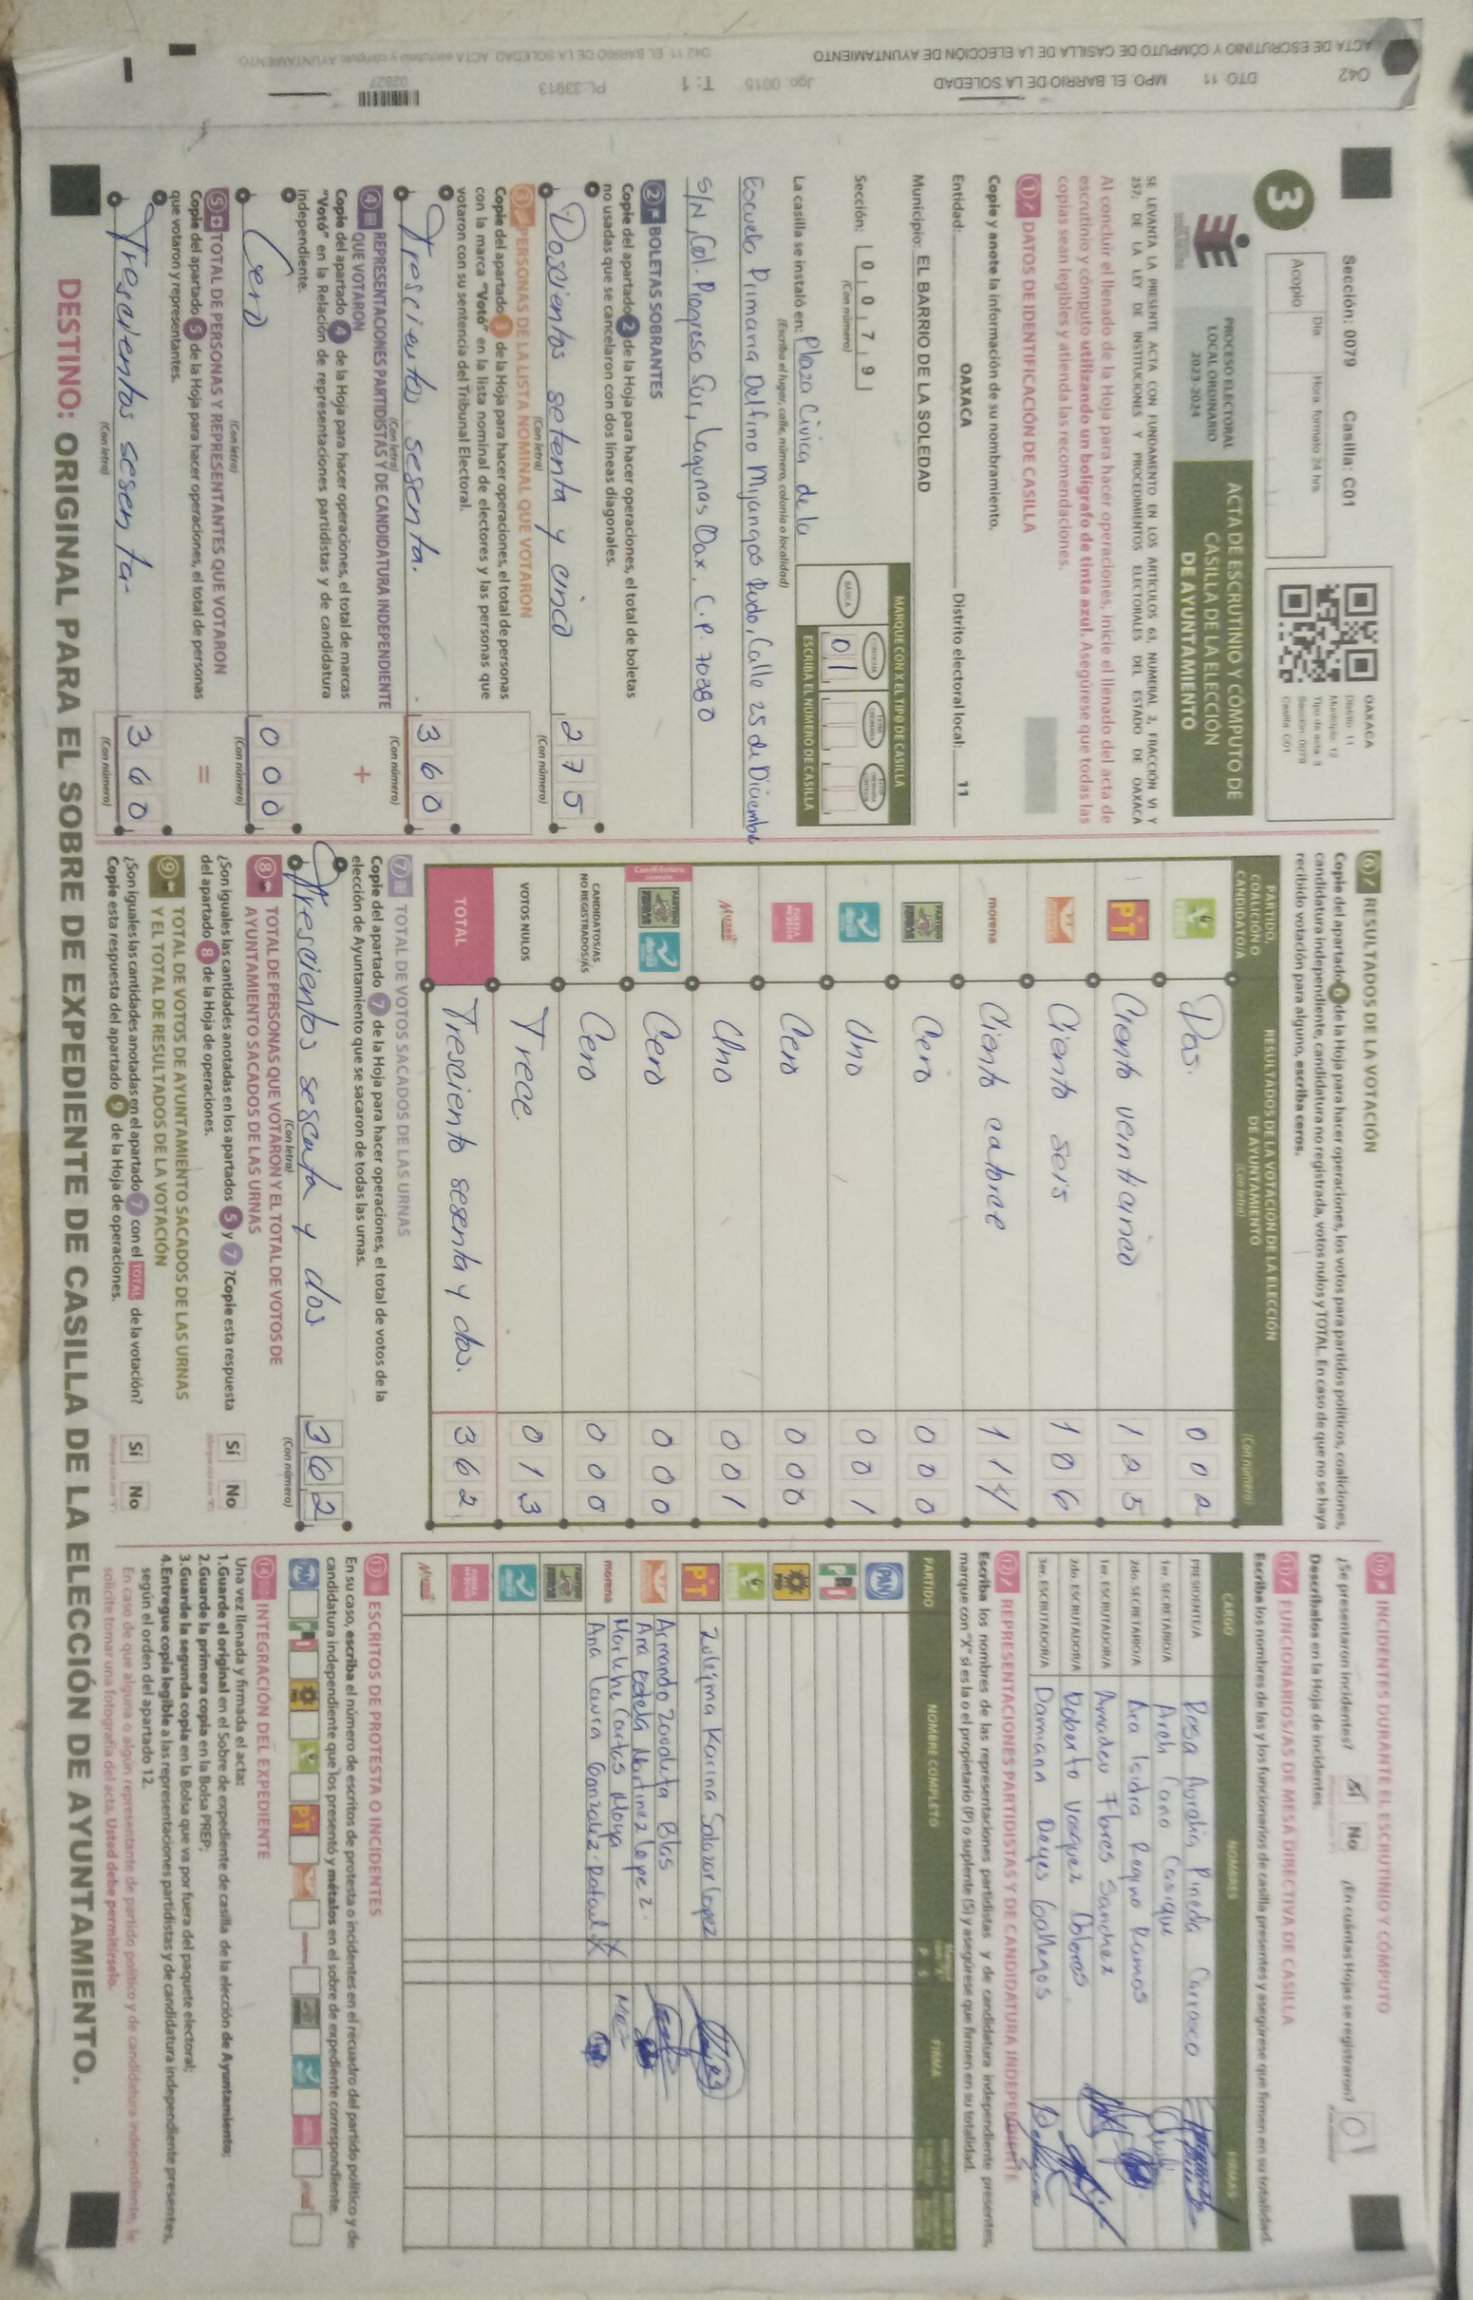 ACTA DE ESCRUTINIO Y CÓMPUTO DE CASILLA DE LA ELECCIÓN DE AYUNTAMIENTO
042 DTO 11 MPO EL BARRIO DE LA SOLEDAD Jgo: 0015 T: 1 PL:33913
Sección: 0079 Casilla: C01
3
Día Hora, formato 24 hrs.
Acopio
OAXACA
Distrito: 11
Municipio: 12
Tipo de acta: 3
Sección: 0079
Casilla: C01
PROCESO ELECTORAL
LOCAL ORDINARIO
2023-2024
ACTA DE ESCRUTINIO Y CÓMPUTO DE
CASILLA DE LA ELECCIÓN
DE AYUNTAMIENTO
SE LEVANTA LA PRESENTE ACTA CON FUNDAMENTO EN LOS ARTÍCULOS 63, NUMERAL 3, FRACCIÓN VI Y
257; DE LA LEY DE INSTITUCIONES Y PROCEDIMIENTOS ELECTORALES DEL ESTADO DE OAXACA
Al concluir el llenado de la Hoja para hacer operaciones, inicie el llenado del acta de
escrutinio y cómputo utilizando un bolígrafo de tinta azul. Asegúrese que todas las
copias sean legibles y atienda las recomendaciones.
1 DATOS DE IDENTIFICACIÓN DE CASILLA
Copie y anote la información de su nombramiento.
Entidad: OAXACA Distrito electoral local: 11
Municipio: EL BARRIO DE LA SOLEDAD
Sección: 0 0 7 9
(Con número)
MARQUE CON X EL TIPO DE CASILLA
BÁSICA
0 1
ESCRIBA EL NÚMERO DE CASILLA
La casilla se instaló en: Plaza Cívica de la
(Escriba el lugar, calle, número, colonia o localidad)
Escuela Primaria Delfino Myangos Rudo, Calle 25 de Diciembre
S/N, Col. Progreso Sur, Lagunas Oax. C.P. 70380
2 BOLETAS SOBRANTES
Copie del apartado 2 de la Hoja para hacer operaciones, el total de boletas
no usadas que se cancelaron con dos líneas diagonales.
Doscientos setenta y cinco 2 7 5
(Con letra) (Con número)
3 PERSONAS DE LA LISTA NOMINAL QUE VOTARON
Copie del apartado 3 de la Hoja para hacer operaciones, el total de personas
con la marca "Votó" en la lista nominal de electores y las personas que
votaron con su sentencia del Tribunal Electoral.
Trescientos sesenta. 3 6 0
(Con letra) (Con número)
4 REPRESENTACIONES PARTIDISTAS Y DE CANDIDATURA INDEPENDIENTE
QUE VOTARON
Copie del apartado 4 de la Hoja para hacer operaciones, el total de marcas
"Votó" en la Relación de representaciones partidistas y de candidatura
independiente.
+
Cero 0 0 0
(Con letra) (Con número)
5 TOTAL DE PERSONAS Y REPRESENTANTES QUE VOTARON
Copie del apartado 5 de la Hoja para hacer operaciones, el total de personas
que votaron y representantes.
=
Trescientos sesenta. 3 6 0
(Con letra) (Con número)
6 RESULTADOS DE LA VOTACIÓN
Copie del apartado 6 de la Hoja para hacer operaciones, los votos para partidos políticos, coaliciones,
candidatura independiente, candidatura no registrada, votos nulos y TOTAL. En caso de que no se haya
recibido votación para alguno, escriba ceros.
PARTIDO, COALICIÓN O CANDIDATO/A
RESULTADOS DE LA VOTACIÓN DE LA ELECCIÓN DE AYUNTAMIENTO
(Con letra) (Con número)
Dos. 0 0 2
PT Ciento veinticinco 1 2 5
Ciento seis 1 0 6
morena Ciento catorce 1 1 4
Cero 0 0 0
Uno 0 0 1
Cero 0 0 0
Uno 0 0 1
Cero 0 0 0
CANDIDATOS/AS NO REGISTRADOS/AS Cero 0 0 0
VOTOS NULOS Trece 0 1 3
TOTAL Tresciento sesenta y dos. 3 6 2
7 TOTAL DE VOTOS SACADOS DE LAS URNAS
Copie del apartado 7 de la Hoja para hacer operaciones, el total de votos de la
elección de Ayuntamiento que se sacaron de todas las urnas.
Trescientos sesenta y dos 3 6 2
(Con letra) (Con número)
8 TOTAL DE PERSONAS QUE VOTARON Y EL TOTAL DE VOTOS DE
AYUNTAMIENTO SACADOS DE LAS URNAS
¿Son iguales las cantidades anotadas en los apartados 5 y 7 ?Copie esta respuesta
del apartado 8 de la Hoja de operaciones.
Sí No
9 TOTAL DE VOTOS DE AYUNTAMIENTO SACADOS DE LAS URNAS
Y EL TOTAL DE RESULTADOS DE LA VOTACIÓN
¿Son iguales las cantidades anotadas en el apartado 7 con el TOTAL de la votación?
Copie esta respuesta del apartado 9 de la Hoja de operaciones.
Sí No
10 INCIDENTES DURANTE EL ESCRUTINIO Y CÓMPUTO
¿Se presentaron incidentes? Sí No ¿En cuántas Hojas se registraron? 01
Descríbalos en la Hoja de incidentes.
11 FUNCIONARIOS/AS DE MESA DIRECTIVA DE CASILLA
Escriba los nombres de las y los funcionarios de casilla presentes y asegúrese que firmen en su totalidad.
CARGO NOMBRES FIRMAS
PRESIDENTE/A Rosa Auralia Pineda Carrasco
1er. SECRETARIO/A Areli Cano Casique
2do. SECRETARIO/A Ana Isidra Regino Ramos
1er. ESCRUTADOR/A Amadeu Flores Sanchez
2do. ESCRUTADOR/A Roberto Vasquez Dolores
3er. ESCRUTADOR/A Damann Reyes Gallegos
12 REPRESENTACIONES PARTIDISTAS Y DE CANDIDATURA INDEPENDIENTE
Escriba los nombres de las representaciones partidistas y de candidatura independiente presentes,
marque con "X" si es la o el propietario (P) o suplente (S) y asegúrese que firmen en su totalidad.
PARTIDO NOMBRE COMPLETO FIRMA
PAN
PRI
PT Zuleyma Karina Salazar Lopez
Armando Zavaleta Blas
Ana Estela Martinez Lopez.
morena Marlene Cortes Moya X
Ana Laura Gonzalez Rafael X
13 ESCRITOS DE PROTESTA O INCIDENTES
En su caso, escriba el número de escritos de protesta o incidentes en el recuadro del partido político y de
candidatura independiente que los presentó y métalos en el sobre de expediente correspondiente.
14 INTEGRACIÓN DEL EXPEDIENTE
Una vez llenada y firmada el acta:
1.Guarde el original en el Sobre de expediente de casilla de la elección de Ayuntamiento;
2.Guarde la primera copia en la Bolsa PREP;
3.Guarde la segunda copia en la Bolsa que va por fuera del paquete electoral;
4.Entregue copia legible a las representaciones partidistas y de candidatura independiente presentes,
según el orden del apartado 12.
En caso de que alguna o algún representante de partido político y de candidatura independiente, le
solicite tomar una fotografía del acta, Usted debe permitírselo.
DESTINO: ORIGINAL PARA EL SOBRE DE EXPEDIENTE DE CASILLA DE LA ELECCIÓN DE AYUNTAMIENTO.